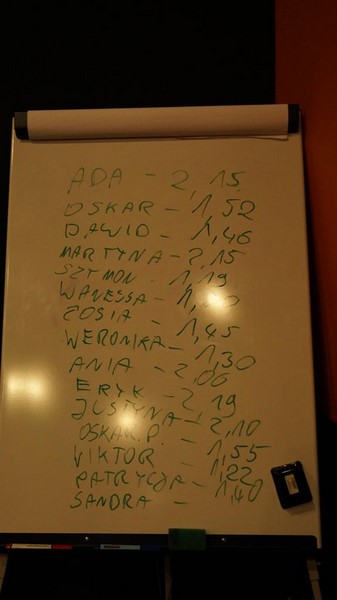 ADA - 2,15
OSKAR - 1,52
DAWID - 1,46
MARTYNA - 2,15
SZYMON - 1,19
WANESSA -
ZOSIA - 1,45
WERONIKA - 1,30
ANIA - 2,06
ERYK - 2,19
JUSTYNA - 2,10
OSKAR P. - 1,55
WIKTOR - 1,22
PATRYCJA - 1,40
SANDRA -